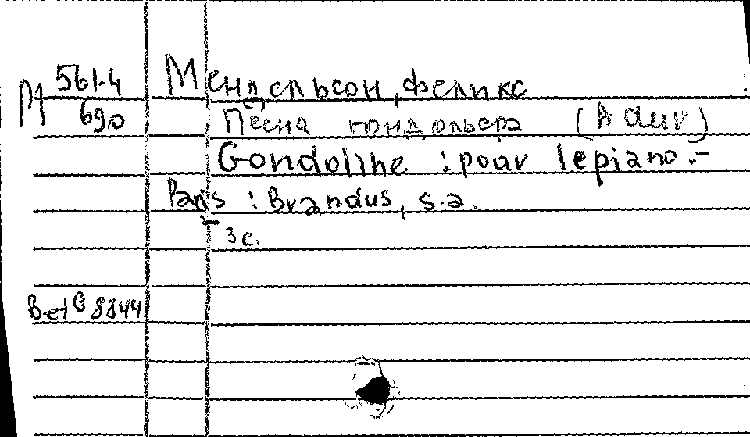 М 561-4 Мендельсон, Феликс
690 Песня гондольера (A dur)
Gondoline : pour lepiano.-
Paris : Brandus, s.a.
- 3 c.
8344